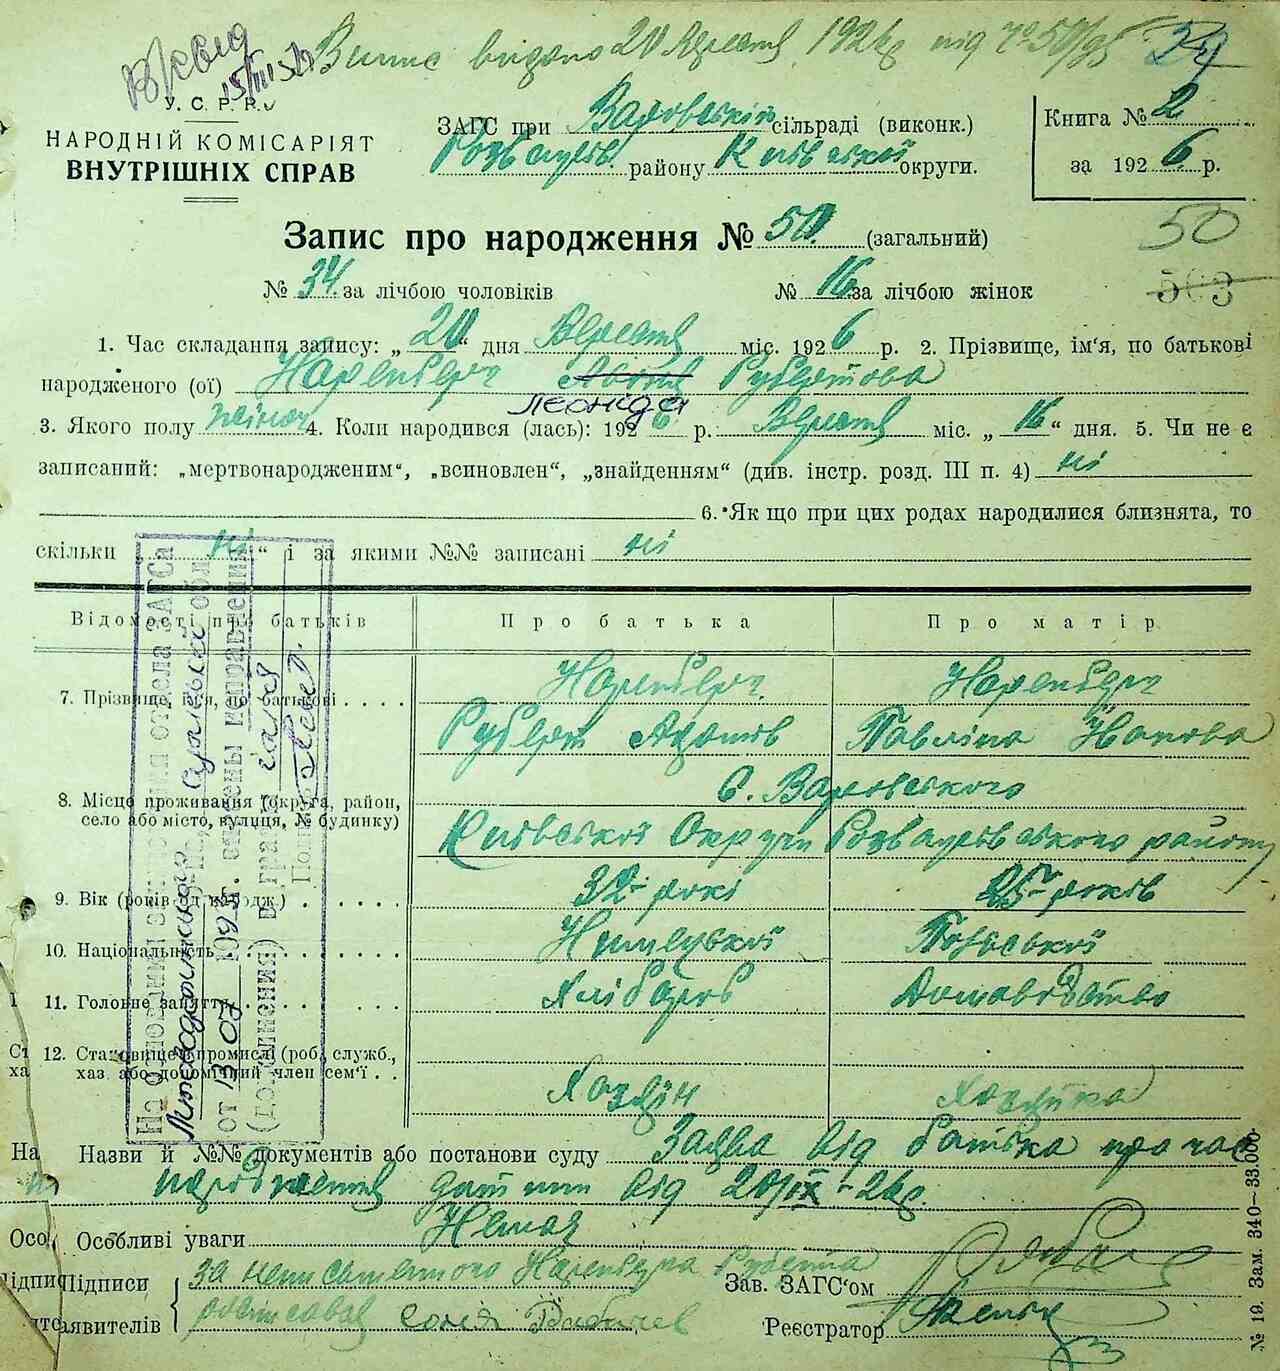 Випис видано 20 Вересня 1926 р під № 50/95
У. С. Р. Р.
НАРОДНІЙ КОМІСАРІЯТ
ВНУТРІШНІХ СПРАВ
ЗАГС при Варовській сільраді (виконк.)
Розважів. району Київської округи.
Книга № 2
за 1926 р.
Запис про народження № 50 (загальний)
50
№ 34 за лічбою чоловіків № 16 за лічбою жінок
503
1. Час складання запису: „20“ дня Вересня міс. 1926 р. 2. Прізвище, ім'я, по батькові
народженого (ої) Наренберг Рубертова
Леонида
3. Якого полу жіноч 4. Коли народився (лась): 1926 р. Вересня міс. „16“ дня. 5. Чи не є
записаний: „мертвонародженим“, „всиновлен“, „знайденням“ (див. інстр. розд. III п. 4) ні
6. Як що при цих родах народилися близнята, то
скільки „ні“ і за якими №№ записані ні
Відомості про батьків Про батька Про матір
7. Прізвище, ім'я, по батькові Наренберг Наренберг
Руберт Адамів Павліна Іванова
8. Місце проживання (округа, район, с. Варовського
село або місто, вулиця, № будинку) Київської Округи Розважівського району
9. Вік (років од народж.) 32 рокі 25 років
10. Національність Німецької Польської
11. Головне заняття Хлібороб Домоводство
12. Становище в промислі (роб., служб.,
хаз. або допомічний член сем'ї Хозяїн Хозяйка
На основании заключения отдела ЗАГСа
от 13 02 внесены исправления
(дополнения) в графы
Назви й №№ документів або постанови суду Заява від батька про час
народження дитини від 20/IX-26 р.
Особливі уваги Немая
Підписи за неписьменного Наренберга Руберта
заявителів росписався
Зав. ЗАГС'ом
Реєстратор
№ 19. Зам. 340—33.000.